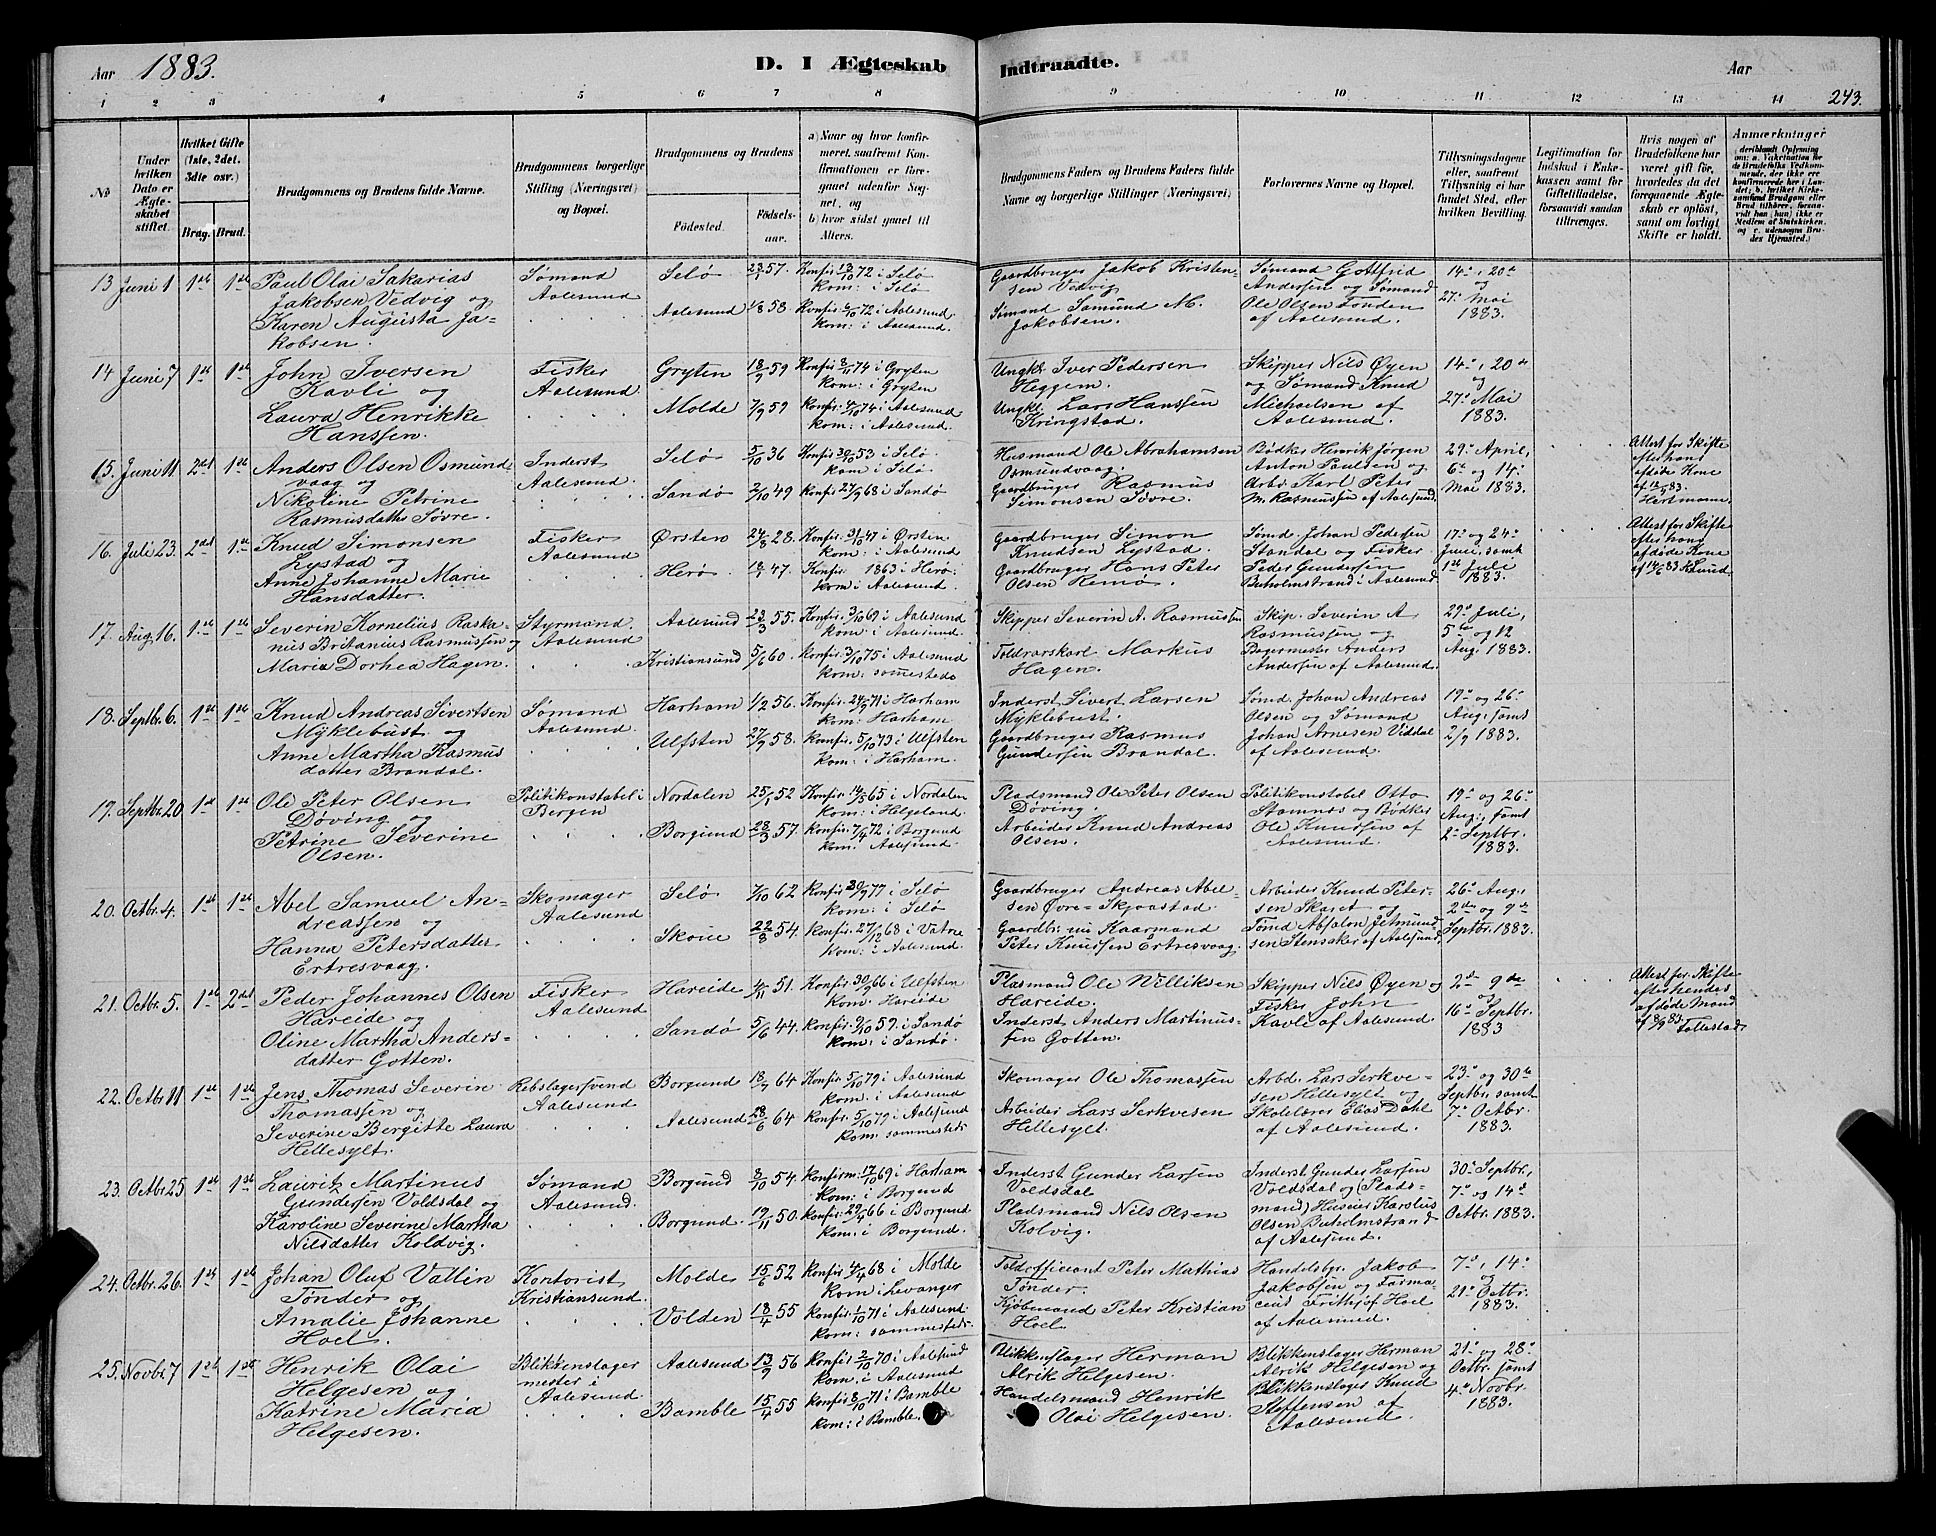 Aar 1883.
D. I Ægteskab Indtraadte.
Aar
243.
1 2 3 4 5 6 7 8 9 10 11 12 13 14
No
Under hvilken Dato er Ægteskabet stiftet.
Hvilket Gifte (1ste, 2det, 3die osv.)
Brag. Brud.
Brudgommens og Brudens fulde Navne.
Brudgommens borgerlige Stilling (Næringsvei) og Bopæl.
Brudgommens og Brudens
Fødested.
Fødselsaar.
a) Naar og hvor konfirmeret, saafremt Konfirmationen er foregaaet udenfor Sognet, og
b) hvor sidst gaaet til Alters.
Brudgommens Faders og Brudens Faders fulde Navne og borgerlige Stillinger (Næringsvei).
Forlovernes Navne og Bopæl.
Tillysningsdagene eller, saafremt Tillysning ei har fundet Sted, efter hvilken Bevilling.
Legitimation for Indskud i Enkekassen samt for Giftetilladelse, forsaavidt saadan tiltrænges.
Hvis nogen af Brudefolkene har været gift før, hvorledes da det foregaaende Ægteskab er opløst, samt om lovligt Skifte er holdt.
Anmærkninger
13 Juni 1 1ste 1ste
Paul Olai Sakarias
Jakobsen Vedvig og
Karen Augusta Ja-
kobsen.
Sømand
Aalesund
Selø
Aalesund 1/8 58
Konfir 13/10 72 i Selø
kom: i Selø
Konfir 6/10 72 i Aalesund
kom: i Aalesund.
Gaardbruger Jakob Kristen-
sen Vedvig
Sømand Samund M.
Jakobsen.
Sømand Gottfrid
Andersen og Sømand
Ole Olsen Tonden
af Aalesund.
14de, 20de
og
27de Mai
1883.
14 Juni 7 1ste 1ste
John Iversen
Kavli og
Laura Henrikke
Hanssen.
Fisker
Aalesund
Gryten 18/9 59
Molde 7/9 59
Konfir 8/11 74 i Gryten
kom: i Gryten
Konfir 4/10 74 i Aalesund
kom: i Aalesund.
Ungkl Iver Pedersen
Heggem.
Ungkl Lars Hanssen
Kringstad.
Skipper Nils Øyen
og Sømand Knud
Michaelsen af
Aalesund.
14de, 20de
og
27de Mai
1883.
15. Juni 11 2det 1ste
Anders Olsen Osmund-
vaag og
Nikoline Petrine
Rasmusdatter Søvre.
Inderst
Aalesund
Selø 5/10 36
Sandø 2/10 49
Konfir 30/10 53 i Selø
kom i Selø
Konfir 27/9 68 i Sandø
Husmand Ole Abrahamsen
Osmundvaag.
Gaardbruger Rasmus
Simonsen Søvre.
Bødker Henrik Jørgen
Anton Paulsen og
Arbr Karl Peter
M. Rasmussen af Aalesund.
29de April,
6te og 14de
Mai 1883.
Attest for Skifte
efter hans
afdøde Kone
16. Juli 23. 2det 1ste
Knud Simonsen
Lystad og
Anne Johanne Marie
Hansdatter.
Fisker
Aalesund
Ørsten 24/8 28.
Herø 18/1 47.
Konfir 31/10 47 i Ørsten
kom: i Aalesund
Konfir 1863 i Herø
kom i Aalesund
Gaardbruger Simon
Knudsen Lystad.
Gaardbruger Hans Peter
Olsen Remø.
Sømd. Johan Pedersen
Standal og Fisker
Peder Gundersen
Buholmstrand i Aalesund
17de og 24de
Juni, samt
1ste Juli
1883.
Attest for Skifte
efter hans
afdøde Kone
af 14/6 83 K Lund
17. Aug. 16. 1ste 1ste
Severin Kornelius Raska-
nus Britanius Rasmussen og
Maria Dorhea Hagen.
Styrmand
Aalesund
Aalesund 23/3 55.
Kristiansund 5/6 60.
Konfir 3/10 69 i Aalesund
kom: i Aalesund
Konfir 3/10 75 i Aalesund
kom: sammesteds
Skipper Severin A. Rasmussen
Toldrorskarl Markus
Hagen.
Skip. Severin A
Rasmussen og
Bagermester Anders
Andersen af Aalesund.
29de Juli,
5te og 12
Aug. 1883.
18. Septbr. 6. 1ste 1ste
Knud Andreas Sivertsen
Myklebust og
Anne Martha Rasmus
datter Brandal.
Sømand
Aalesund
Harham 1/2 56.
Ulfsten 27/9 58.
Konfir 24/9 71 i Harham
kom: Harham
Konfir 5/10 73 i Ulfsten
kom: i Harham.
Inderst Sivert Larsen
Myklebust.
Gaardbruger Rasmus
Gundersen Brandal.
Sømd. Johan Andreas
Olsen og Sømand
Johan Arnesen Viddal
af Aalesund.
19de og 26de
Aug. samt
2/9 1883.
19. Septbr 20 1ste 1ste
Ole Peter Olsen
Døving og
Petrine Severine
Olsen.
Politikonstabel i
Bergen
Nordalen 25/1 52
Borgund 28/3 57.
Konfir 14/5 65 i Nordalen
kom: i Helgeland.
Konfir 7/4 72 i Borgund
kom. Aalesund.
Pladsmand Ole Peter Olsen
Døving.
Arbeider Knud Andreas
Olsen.
Politikonstabel Otto
Stamnes og Bødker
Ole Knudsen af
Aalesund.
19de og 26de
Aug., samt
2den Septbr.
1883.
20. Octbr. 4. 1ste 1ste
Abel Samuel An-
dreassen og
Hanna Petersdatter
Ertresvaag.
Skomager
Aalesund
Selø 7/10 62
Skoue 22/8 54.
Konfir 30/9 77 i Selø
kom: i Selø
Konfir. 27/12 68 i Vatne
kom: i Aalesund.
Gaardbruger Andreas Abel-
sen Øvre-Skjaastad.
Gaardbr. nu Kaarmand
Peter Knudsen Ertresvaag.
Arbeider Knud Peter-
sen Skaret og
Tømd Absalon Jetmund-
sen Stensaker af Aalesund.
26de Aug.
2den og 9de
Septbr. 1883.
21. Octbr. 5. 1ste 2det
Peder Johannes Olsen
Hareide og
Oline Martha Anders-
datter Gotten.
Fisker
Aalesund
Hareide 4/11 51.
Sandø 5/6 44.
Konfir 30/9 66 i Ulfsten
kom: Hareide
Konfir: 9/10 59. i Sandø
kom: i Sandø.
Plasmand Ole Williksen
Hareide.
Inderst Anders Martinus-
sen Gotten.
Skipper Nils Øyen og
Fisker John
Kavli af Aalesund.
2den 9de
og
16de Septbr.
1883
Attest for Skifte
efter hendes
afdøde Mand
af 8/9 83. Tollestad
22. Octbr. 11 1ste 1ste
Jens Thomas Severin
Thomassen og
Severine Bergitte Laura
Hillesylt.
Rebslagersvend
Aalesund
Borgund 18/7 64
Aalesund 28/6 64
Konfir 5/10 79 i Aalesund
kom. i Aalesund
Konfir. 5/10 79 i Aalesund
kom: sammesteds
Skomager Ole Thomassen
Arbeider Lars Serkvesen
Hellesylt.
Arbd. Lars Serkve-
sen Hillesylt og
Skolelærer Elias Dahl
af Aalesund.
23de og 30te
Septbr. samt
7de Octbr.
1883.
23. Octbr 25 1ste 1ste
Lauritz Martinus
Gundersen Voldsdal og
Karoline Severine Martha
Nilsdatter Koldvig.
Sømand
Aalesund.
Borgund 8/10 54.
Borgund. 19/11 50.
Konfirm: 17/10 69 i Harham
kom: i Borgund
Konfir: 29/4 66 i Borgund
kom: i Borgund.
Inderst Gunder Larsen
Voldsdal
Pladsmand Nils Olsen
Kolvig.
Inderst Gunder Larsen
Voldsdal og (Plads-
mand) Huseier Karolus
Olsen Buholmstrand
af Aalesund.
30te Septbr.,
7de og 14de
Octbr. 1883.
24. Octbr. 26. 1ste 1ste
Johan Oluf Vallin
Tønder og
Amalie Johanne
Hoel.
Kontorist
Kristiansund.
Molde 15/6 52
Volden 18/4 55
Konfir 4/4 68 i Molde
kom i Levanger
Konfir: 1/10 71 i Aalesund.
kom: sammesteds.
Toldofficiant Peter Mathias
Tønder.
Kjøbmand Peter Kristian
Hoel.
Handelsbgr. Jakob
Jakobsen og Farma-
ceut Frithjof Hoel
af Aalesund.
7de, 14de
og
21de Octbr.
1883.
25. Novbr. 7 1ste 1ste
Henrik Olai
Helgesen og
Katrine Maria
Helgesen.
Blikkenslager
mester i
Aalesund.
Aalesund 13/9 56
Bamble 15/4 55
Konfir 2/10 70 i Aalesund
kom. i Aalesund
Konfir 8/10 71 i Bamble
kom: i Bamble.
Blikkenslager Herman
Alrik Helgesen.
Handelsmand Henrik
Olai Helgesen.
Blikkenslager Herman
Alrik Helgesen og
Blikkenslager Knud
Steffensen af
Aalesund.
21de og 28de
Octbr. samt
4de Novbr.
1883.